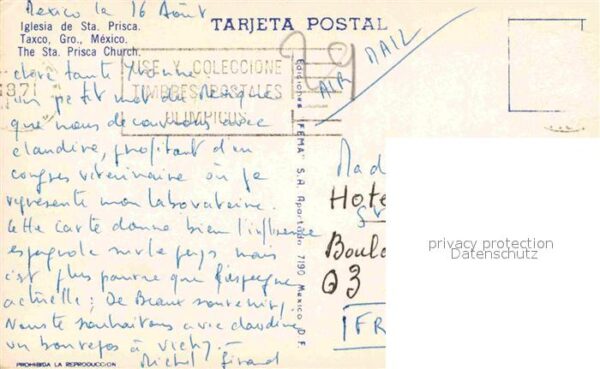 Mexico le 16 Août
Iglesia de Sta. Prisca.
Taxco, Gro., México.
The Sta. Prisca Church.
TARJETA POSTAL
AIR MAIL
1971
USE Y COLECCIONE
TIMBRES POSTALES
OLIMPICOS
29
chère tante Yvonne
un petit mot du Mexique
que nous découvrons avec
claudine, profitant d'un
congres vétérinaire où je
représente mon laboratoire.
Cette carte donne bien l'influence
espagnole sur le pays mais
c'est plus pauvre que l'espagne
actuelle; De Beaux souvenirs.
Nous te souhaitons avec claudine
un bon repos à Vichy.
Michel Girard
PROHIBIDA LA REPRODUCCION
Ediciones "FEMA" S.A. Apartado 7190 Mexico D.F.
Mad
Hote
Boule
03
FR
privacy protection
Datenschutz